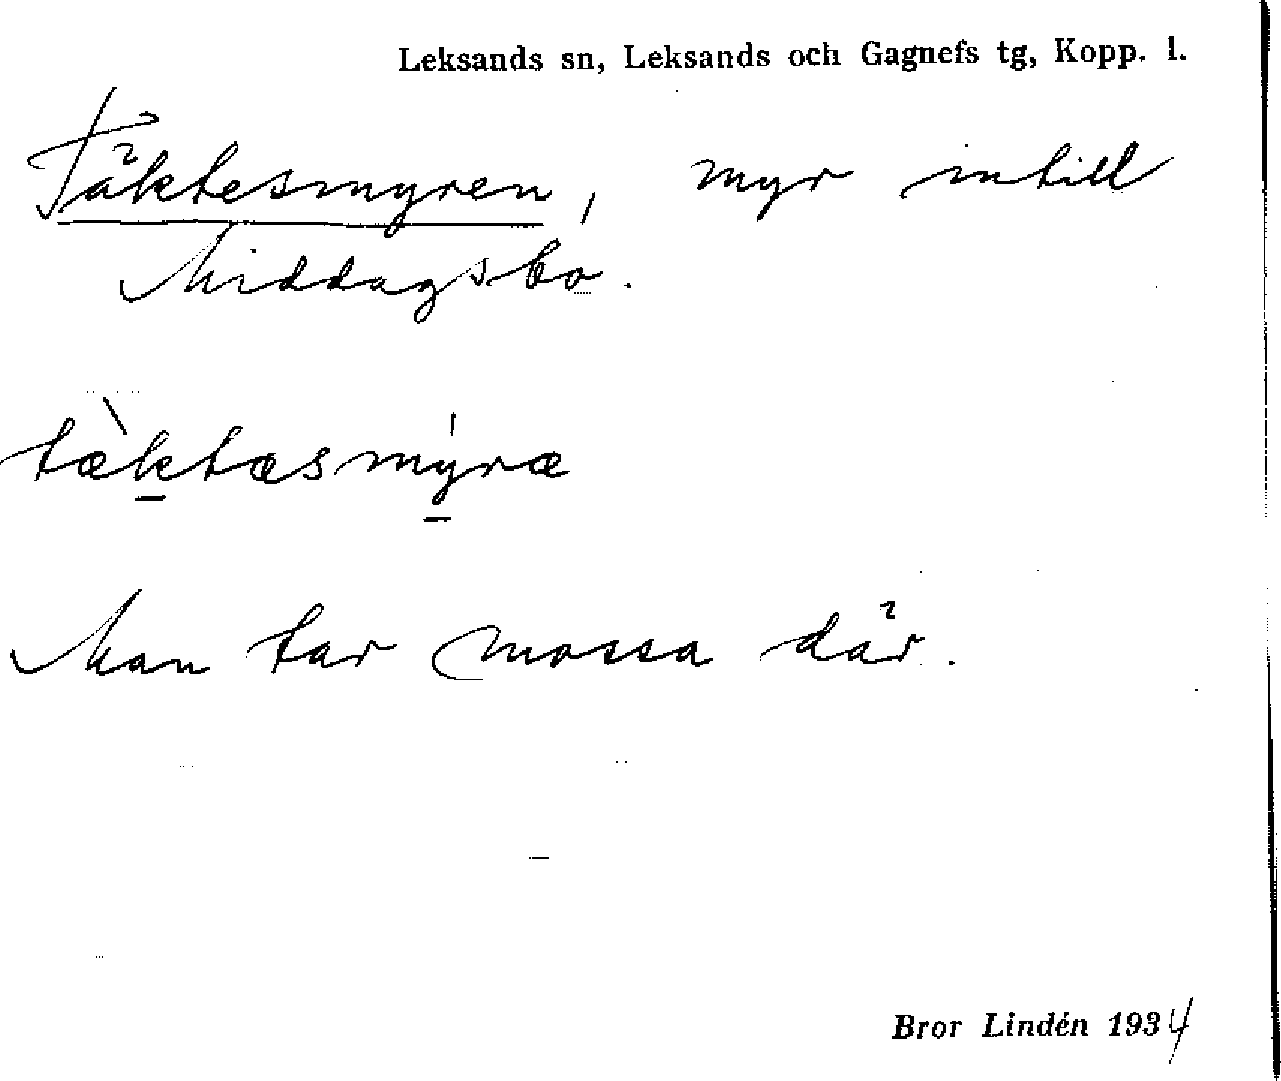 Leksands sn, Leksands och Gagnefs tg, Kopp. l.
Täktesmyren, myr intill
Middagsbo.
tæ̀ktæsmy̍ræ
Man tar mossa där.
Bror Lindén 1934